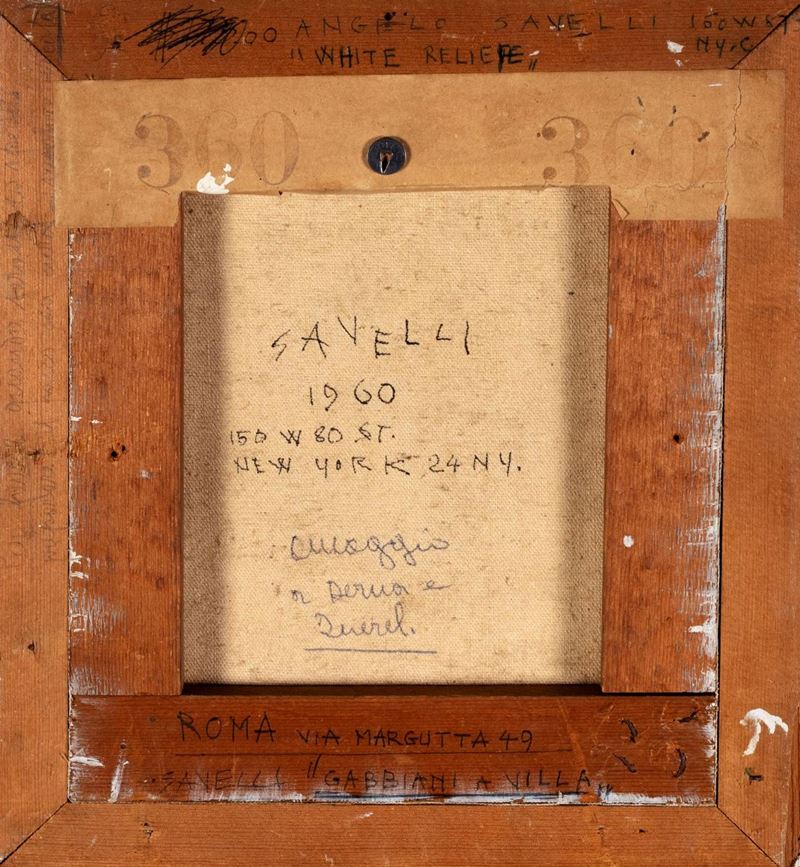 ANGELO SAVELLI 150 W ST
"WHITE RELIEFE„ NY.C
360 360
SAVELLI
1960
150 W 80 ST.
NEW YORK 24 NY.
omaggio
a
ROMA VIA MARGUTTA 49
SAVELLI "GABBIANI A VILLA„